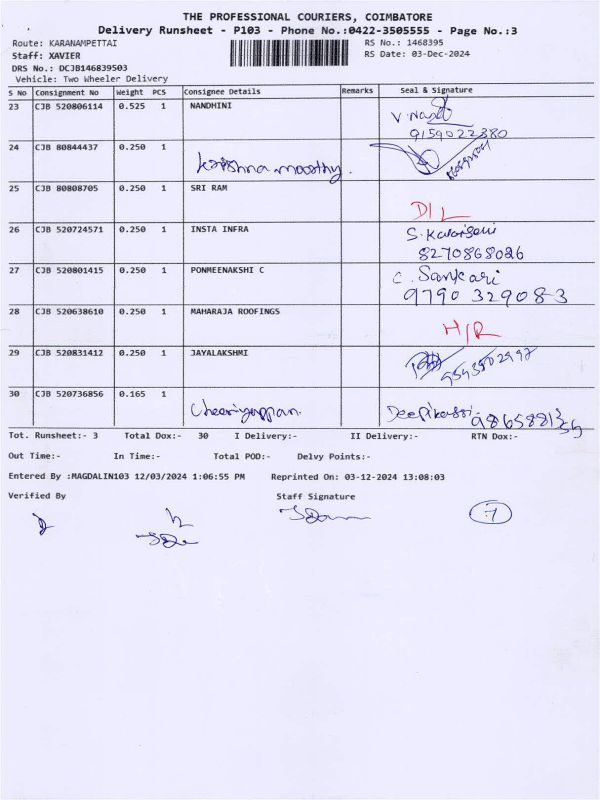 THE PROFESSIONAL COURIERS, COIMBATORE
Delivery Runsheet - P103 - Phone No.:0422-3505555 - Page No.:3
Route: KARANAMPETTAI RS No.: 1468395
Staff: XAVIER RS Date: 03-Dec-2024
DRS No.: DCJB146839503
Vehicle: Two Wheeler Delivery
S No Consignment No Weight PCS Consignee Details Remarks Seal & Signature
23 CJB 520806114 0.525 1 NANDHINI
9159022380
24 CJB 80844437 0.250 1 krishna moorthy.
25 CJB 80808705 0.250 1 SRI RAM D/L
26 CJB 520724571 0.250 1 INSTA INFRA
8270868026
27 CJB 520801415 0.250 1 PONMEENAKSHI C C. Sankari
9790 329083
28 CJB 520638610 0.250 1 MAHARAJA ROOFINGS H/R
29 CJB 520831412 0.250 1 JAYALAKSHMI
30 CJB 520736856 0.165 1
Tot. Runsheet:- 3 Total Dox:- 30 I Delivery:- II Delivery:- RTN Dox:-
Out Time:- In Time:- Total POD:- Delvy Points:-
Entered By :MAGDALIN103 12/03/2024 1:06:55 PM Reprinted On: 03-12-2024 13:08:03
Verified By Staff Signature
7